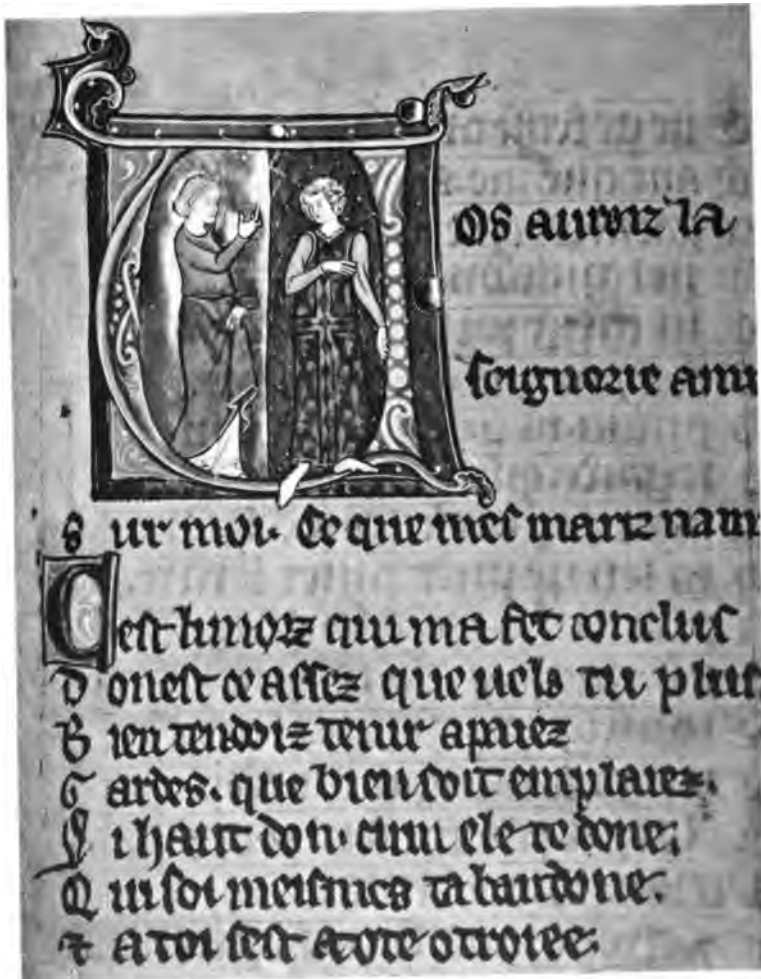 Vos auroiz la
seignorie amis
Sur moi. Ce que mes mariz nam
Cest li morz qui ma fet conclus
Don est ce assez que uels tu plus
Bien ten doiz tenir a paiez
Gardes. que bien soit emplaiez.
Si haut don. cum ele te done;
Qui soi meismes tabandone.
⁊ a toi sest a tote otroiee.